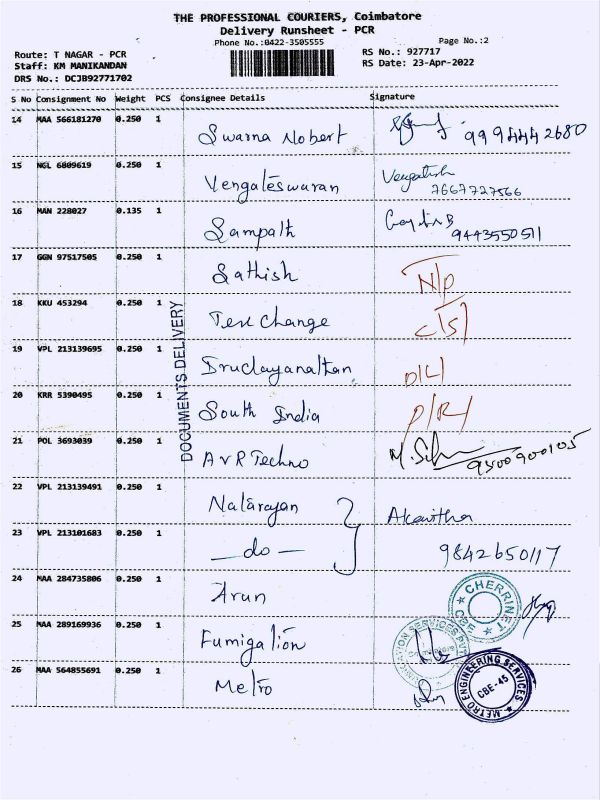 THE PROFESSIONAL COURIERS, Coimbatore
Delivery Runsheet - PCR
Phone No.:0422-3505555
Page No.:2
Route: T NAGAR - PCR
RS No.: 927717
Staff: KM MANIKANDAN
RS Date: 23-Apr-2022
DRS No.: DCJB92771702
S No Consignment No Weight PCS Consignee Details Signature
14 MAA 566181270 0.250 1 Swarna Nobert 9994442680
15 NGL 6809619 0.250 1 Vengateswaran Vengatesh
7667727566
16 MAN 228027 0.135 1 Sampath
9443550511
17 GGN 97517505 0.250 1 Sathish N/p
18 KKU 453294 0.250 1 Tex Change C/S
19 VPL 213139695 0.250 1 Irudayanathan D/L
20 KRR 5390495 0.250 1 South India P/R
21 POL 3693039 0.250 1 AVR Techno 9500900105
22 VPL 213139491 0.250 1 Natarayan
23 VPL 213101683 0.250 1 —do— 9842650117
24 MAA 284735806 0.250 1 Arun
25 MAA 289169936 0.250 1 Fumigation
26 MAA 564855691 0.250 1 Metro
DOCUMENTS DELIVERY
CHERRINET
CBE
METRO ENGINEERING SERVICES
CBE-45